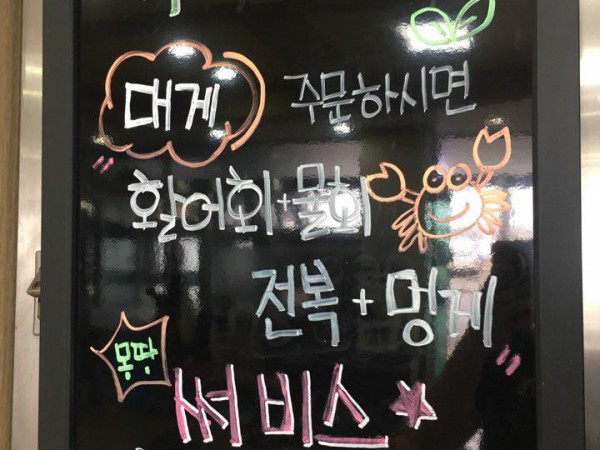 대게 주문하시면
"활어회+물회
전복+멍게"
몽땅 써비스